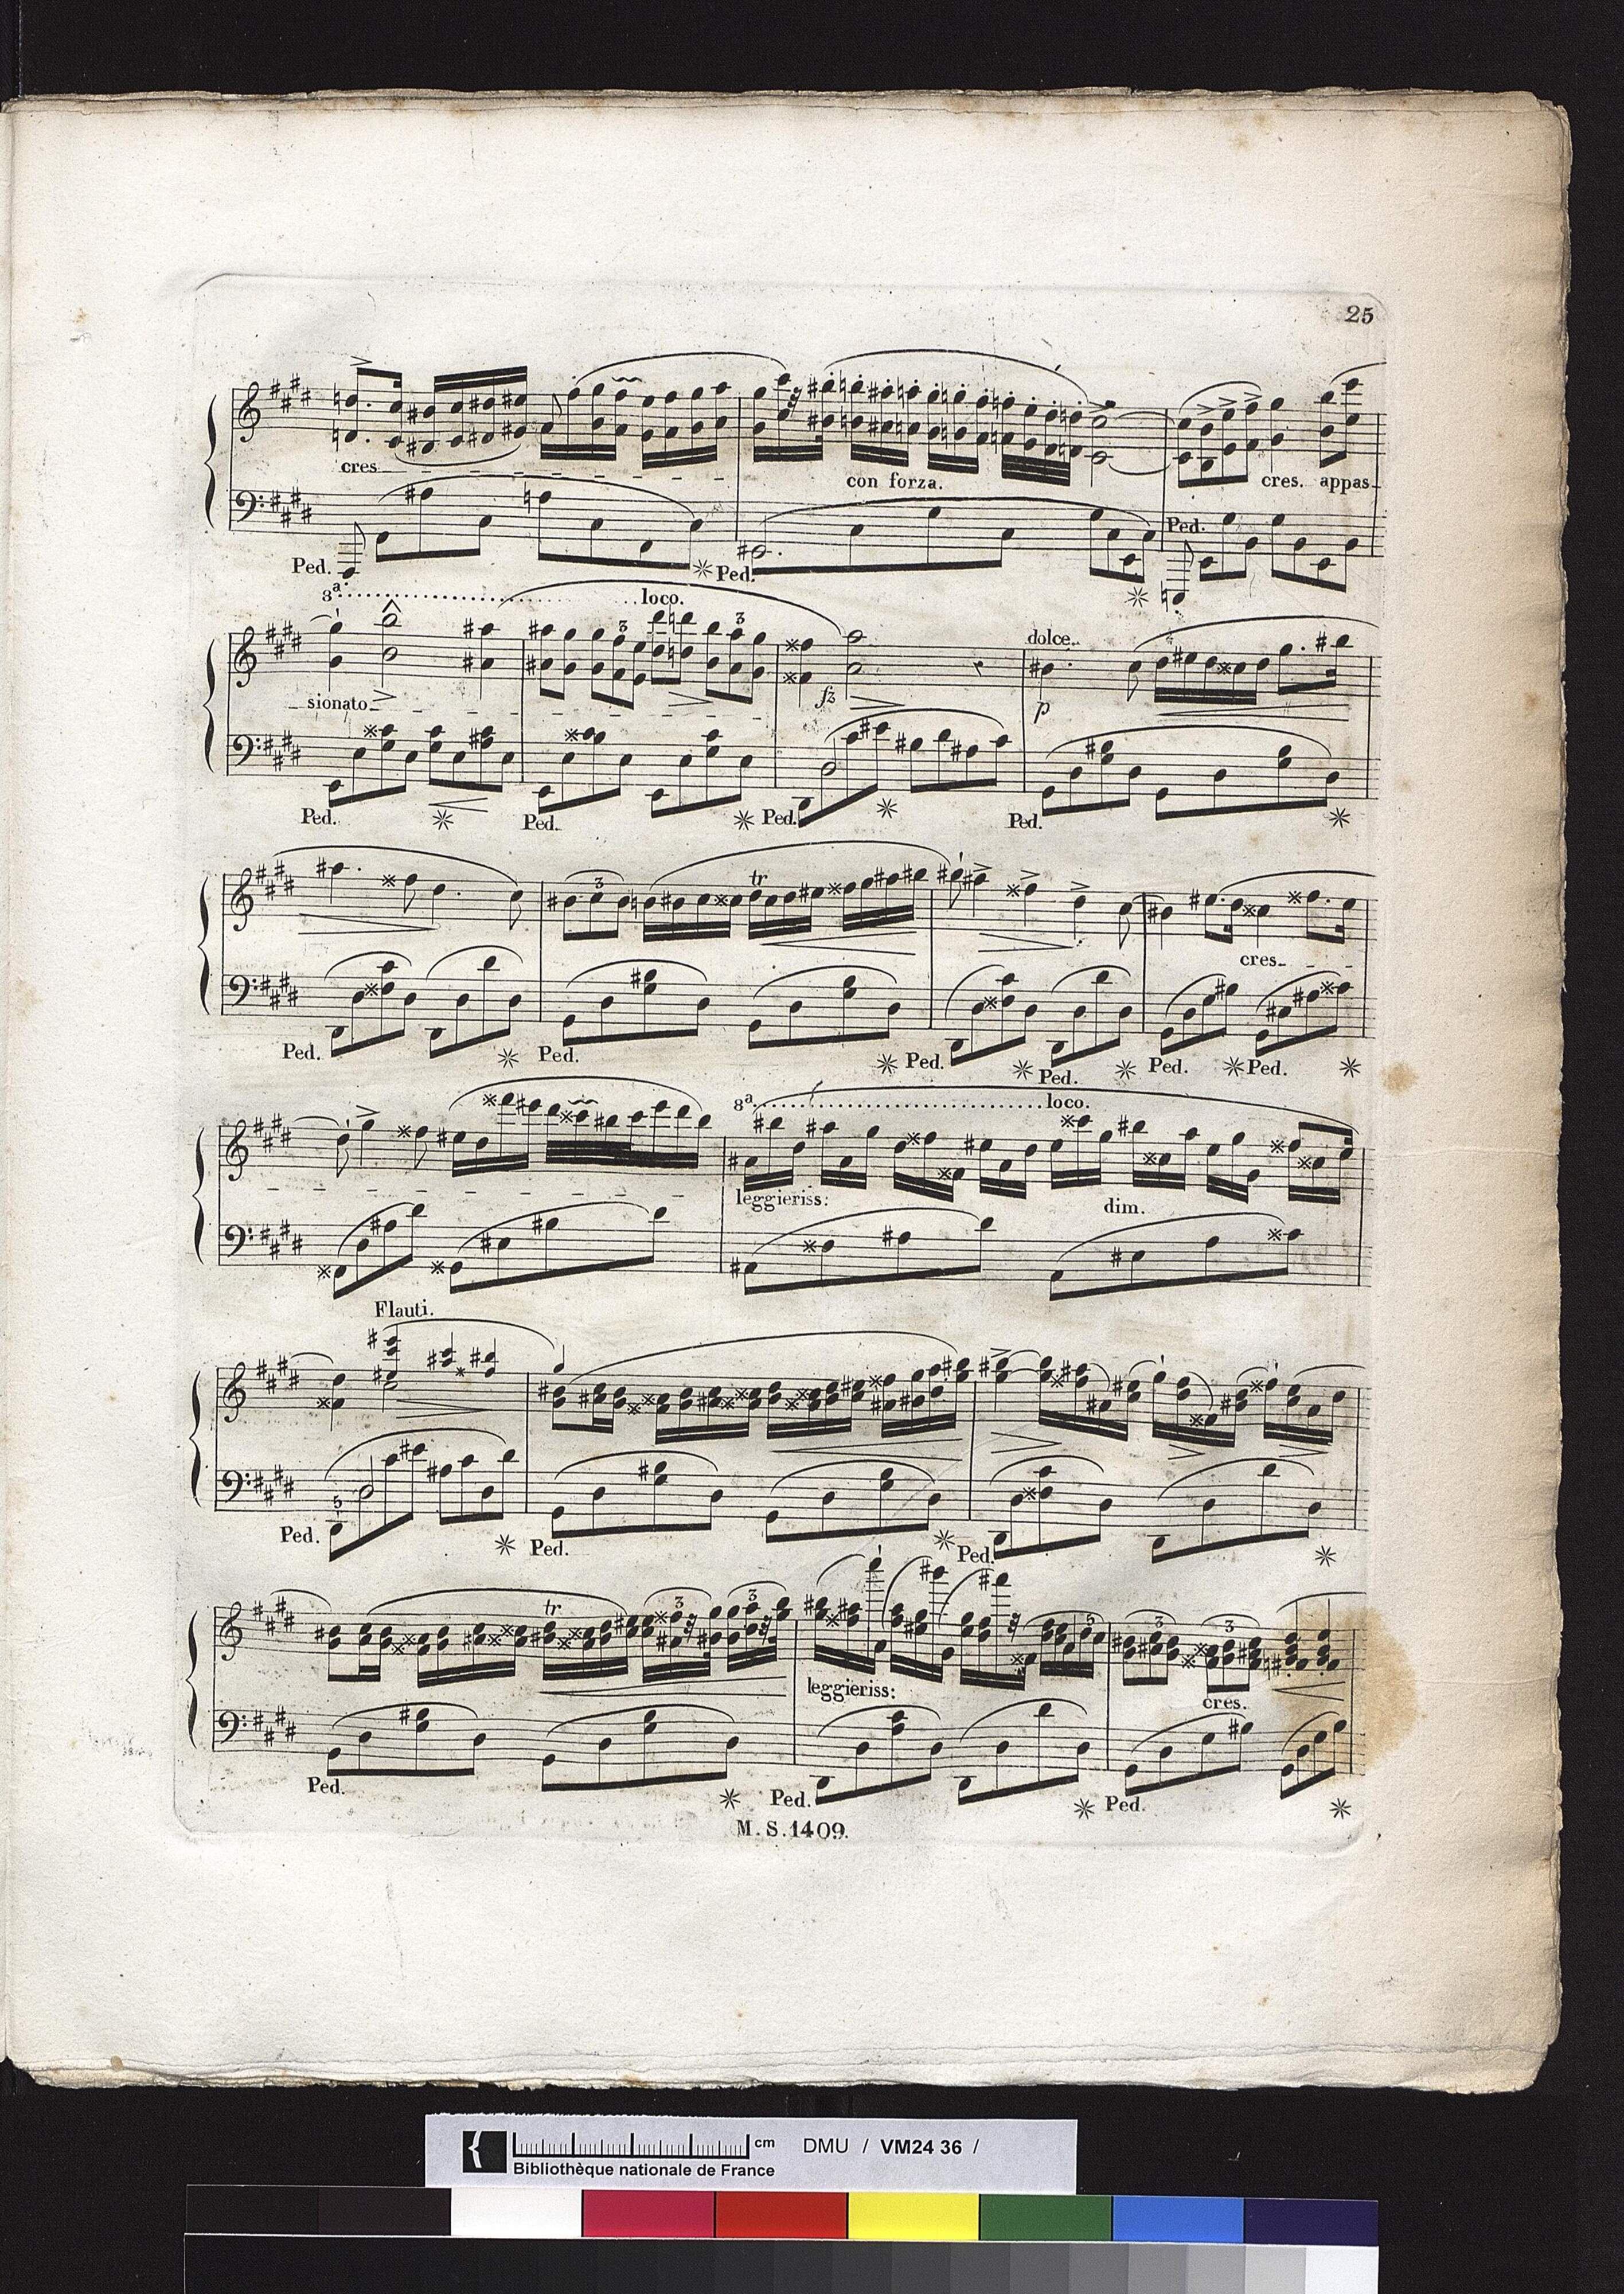 25
cres
con forza.
cres. appas-
Ped.
Ped.
Ped.
8ª loco.
3
3
dolce.
sionato
fz
p
Ped.
Ped.
Ped.
Ped.
3
tr
cres
Ped.
Ped.
Ped.
Ped.
Ped.
Ped.
8ª loco.
leggieriss:
dim.
Flauti.
5
Ped.
Ped.
Ped.
tr
3
3
5
3
3
leggieriss:
cres.
Ped.
Ped.
Ped.
M.S.1409.
cm
DMU / VM24 36 /
Bibliothèque nationale de France